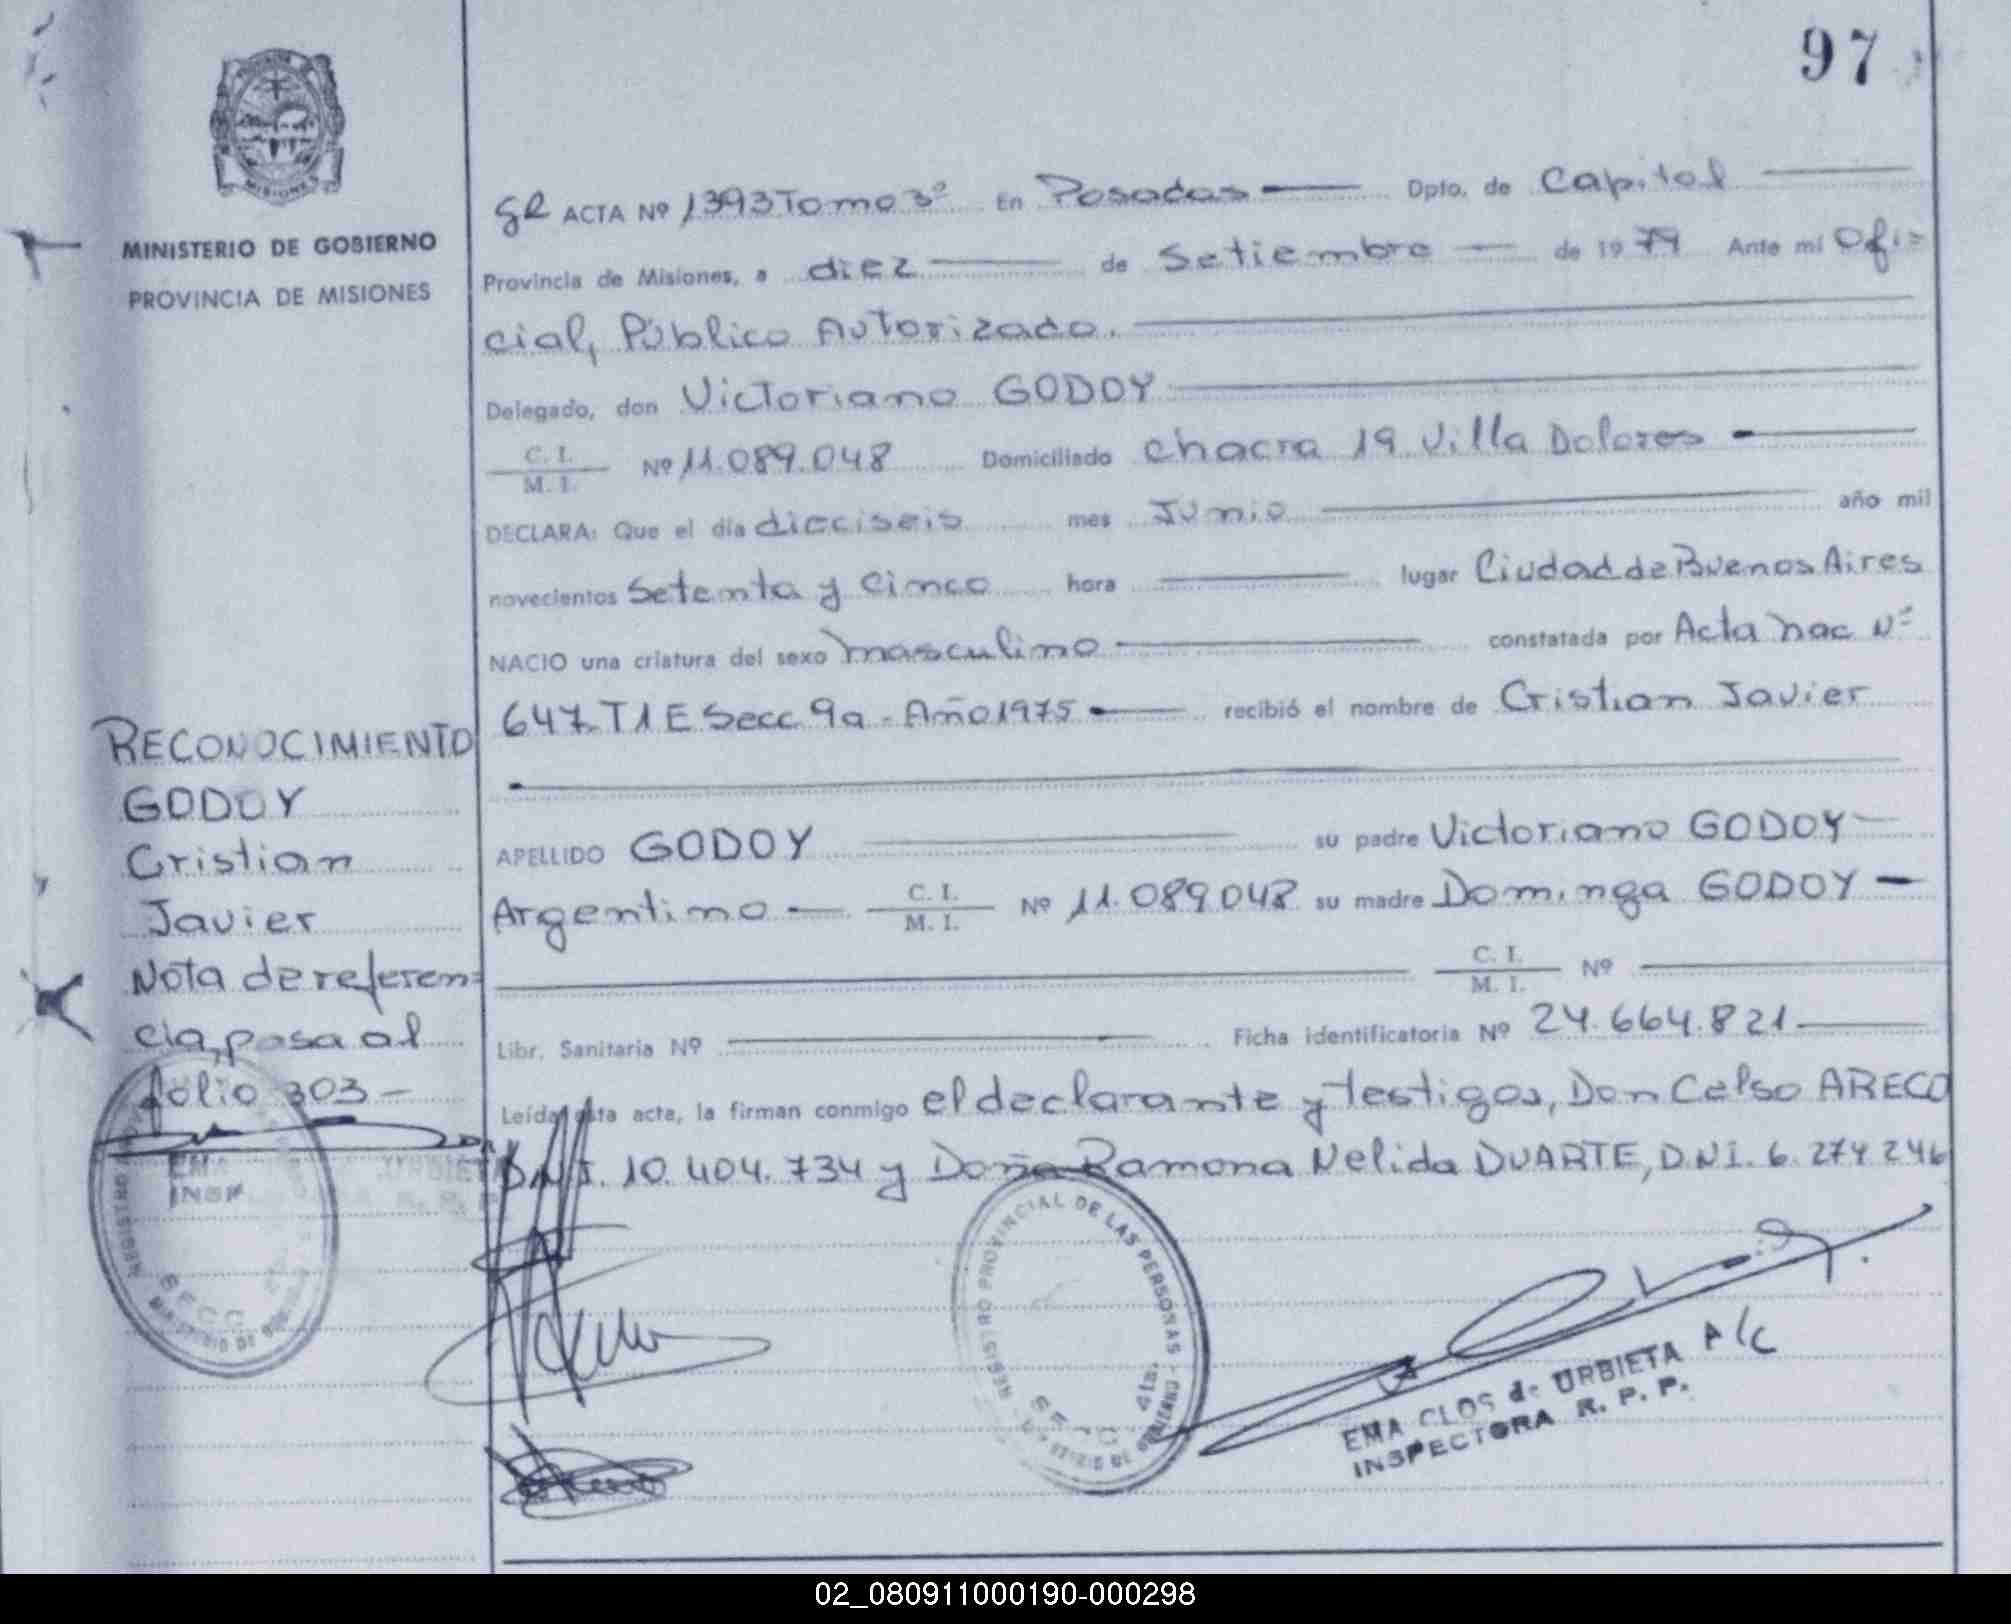 97
MISIONES
MINISTERIO DE GOBIERNO
PROVINCIA DE MISIONES
RECONOCIMIENTO
GODOY
Cristian
Javier
Nota de referen=
cia, pasa al
folio 303 -
gR ACTA Nº 1393 Tomo 3º En Posadas Dpto. de Capital
Provincia de Misiones, a diez de Setiembre de 1979 Ante mí Ofi=
cial, Público Autorizado.
Delegado, don Victoriano GODOY
C. I. / M. I. Nº 11.089.048 Domiciliado Chacra 19 Villa Dolores
DECLARA: Que el día dieciseis mes Junio año mil
novecientos Setenta y Cinco hora lugar Ciudad de Buenos Aires
NACIO una criatura del sexo masculino constatada por Acta nac Nº
647 T1E Secc 9a - Año 1975 recibió el nombre de Cristian Javier
APELLIDO GODOY su padre Victoriano GODOY
Argentino C. I. / M. I. Nº 11.089.048 su madre Dominga GODOY
C. I. / M. I. Nº
Libr. Sanitaria Nº Ficha identificatoria Nº 24.664.821
Leída esta acta, la firman conmigo el declarante y testigos, Don Celso ARECO
D.N.I. 10.404.734 y Doña Ramona Nelida DUARTE, D.N.I. 6.274.246
REGISTRO PROVINCIAL DE LAS PERSONAS
EMA CLOS de URBIETA A/C
INSPECTORA R. P. P.
02_080911000190-000298